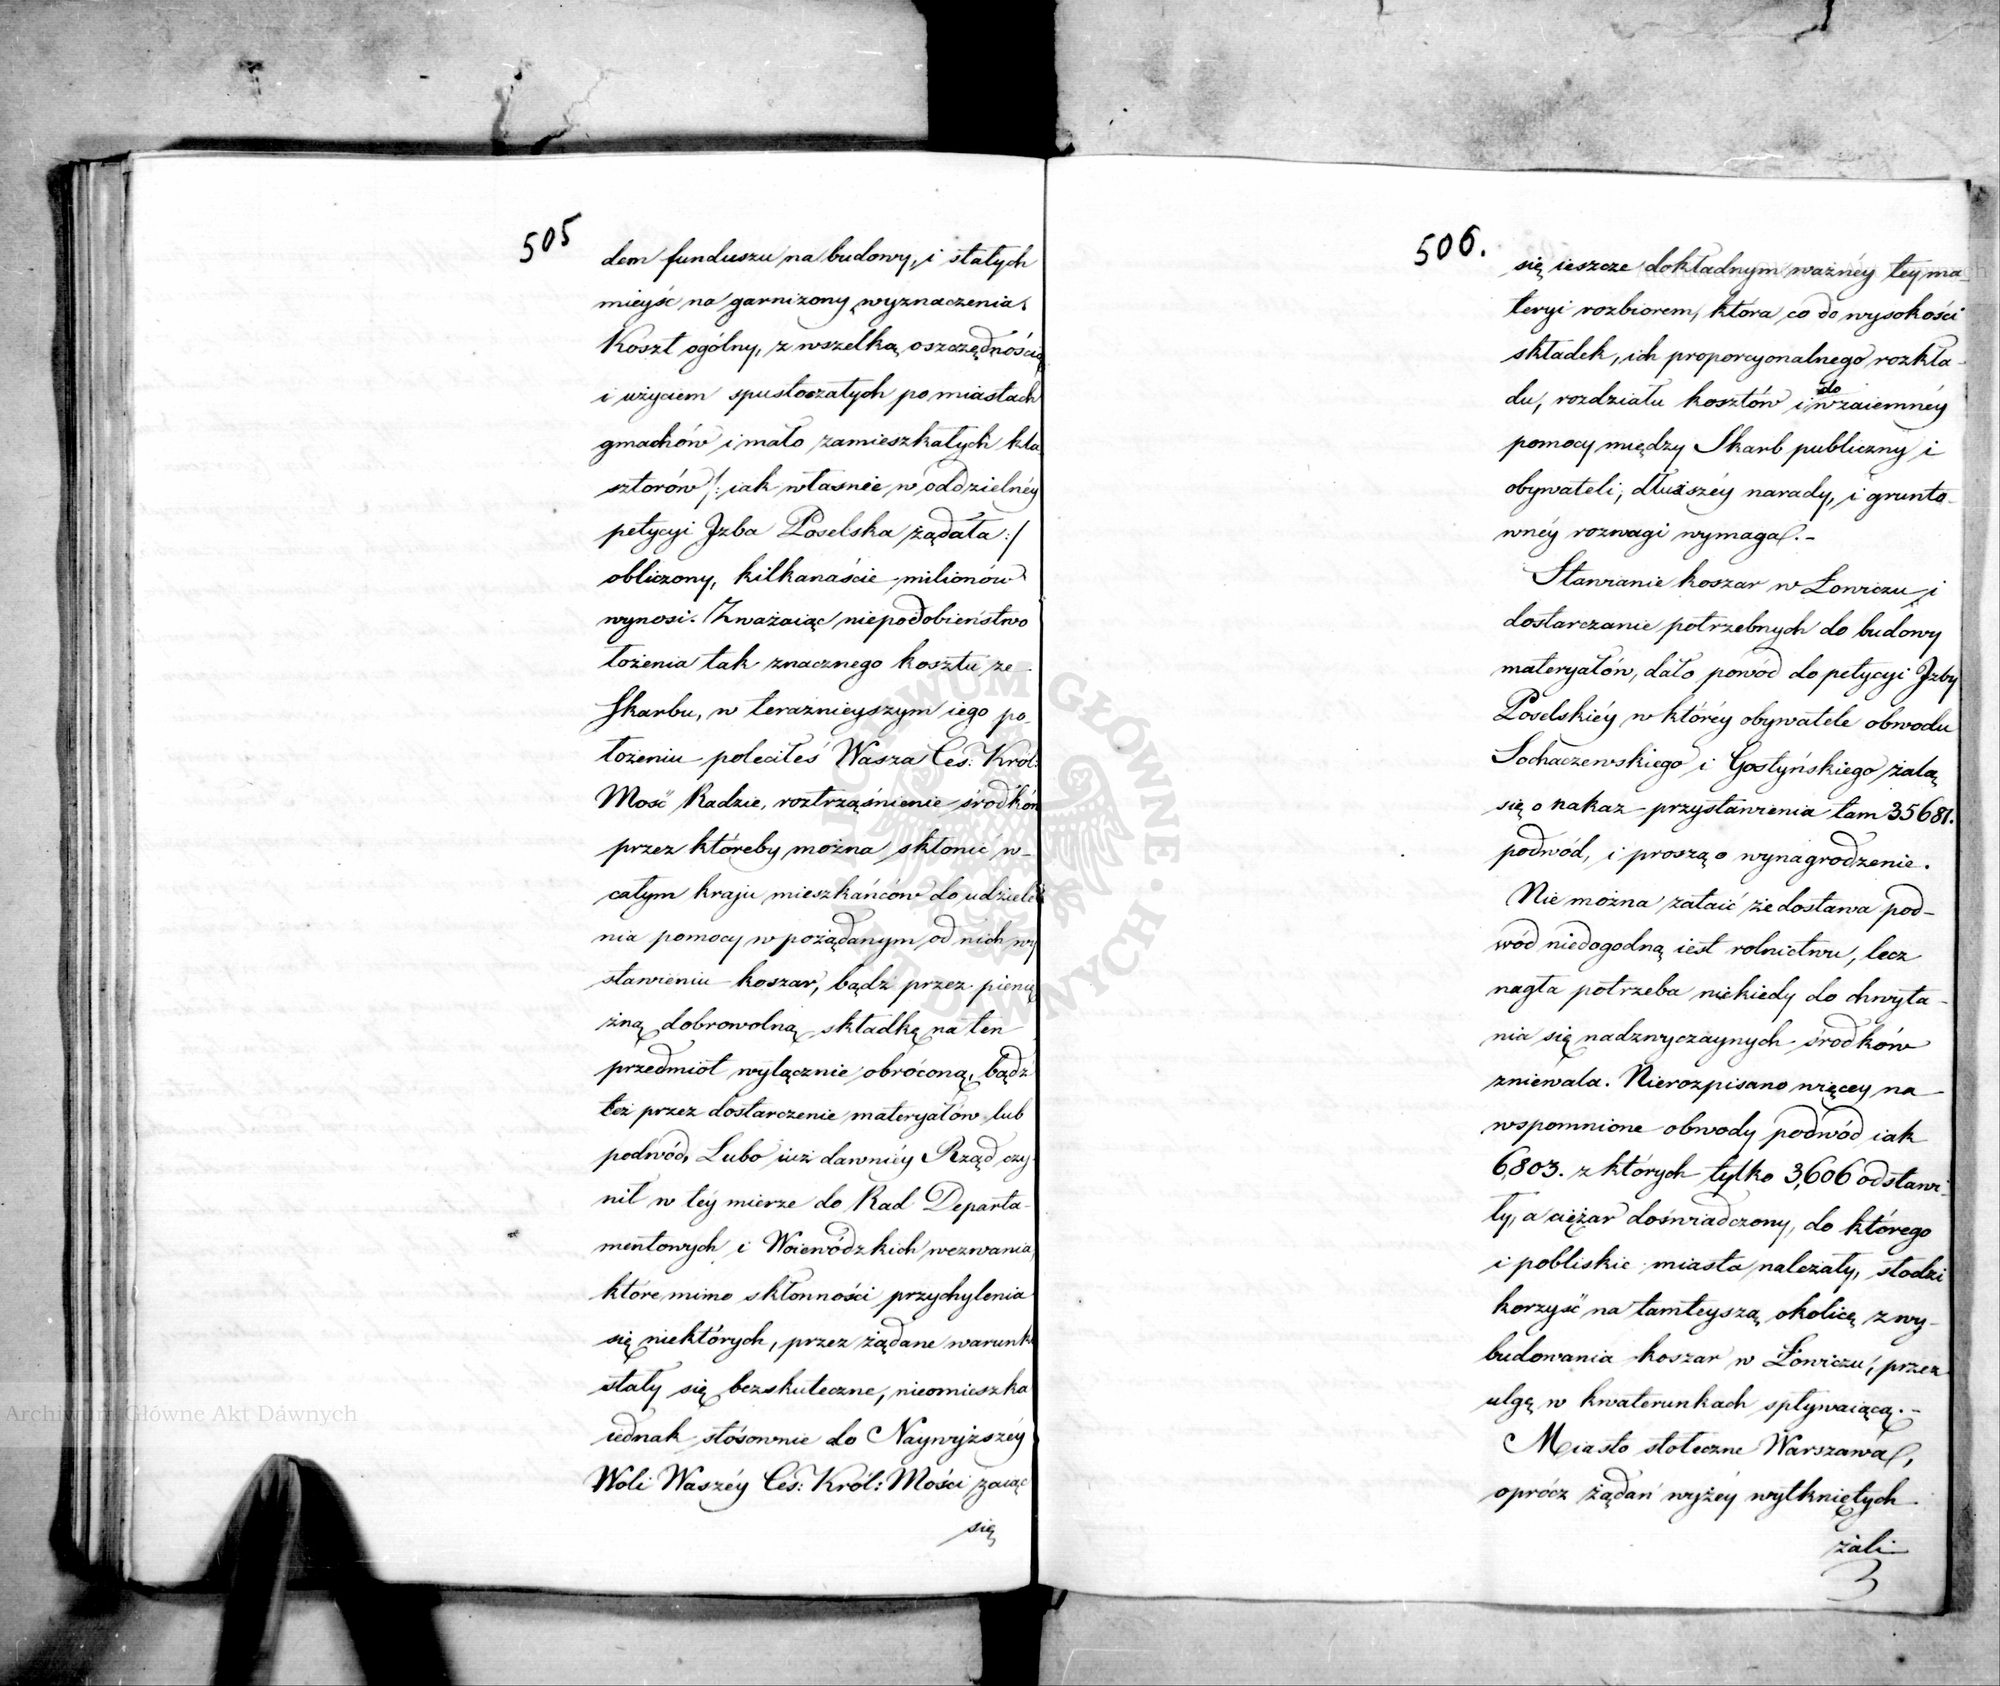 505
dem funduszu na budowy, i stałych
mieyść na garnizony wyznaczenia.
Koszt ogólny, z wszelką oszczędnością
i użyciem spustoszałych po miastach
gmachów i mało zamieszkałych kla
sztorów /: iak własnie w oddzielnéy
petycyi Jzba Poselska żądała :/
obliczony, kilkanaście milionów
wynosi. Zważaiąc niepodobieństwo
łożenia tak znacznego kosztu ze
Skarbu, w teraznieyszym iego po-
łożeniu poleciłeś Wasza Ces: Król:
Mość Radzie, roztrząśnienie środków
przez któreby można skłonić w-
całym kraju mieszkańców do udziele
nia pomocy w pożądanym od nich wy
stawieniu koszar, bądź przez pienię
żną dobrowolną składkę na ten
przedmiot wyłącznie obróconą, bądź
też przez dostarczenie materyałów lub
podwód, Lubo iuż dawniéy Rząd czy-
nił w téy mierze do Rad Departa-
mentowych i Woiewódzkich wezwania,
które mimo skłonności przychylenia
się niektórych, przez żądane warunki
stały się bezskuteczne, nieomieszka
iednak stósownie do Naywyższéy
Woli Waszéy Ces: Król: Mości zaiąć
się
506.
się ieszcze dokładnym ważnéy tey ma-
teryi rozbiorem, która co do wysokości
składek, ich proporcyonalnego rozkła-
du, rozdziału kosztów i do wzaiemnéy
pomocy między Skarb publiczny i
obywateli, dłuższéy narady, i grunto-
wnéy rozwagi wymaga. -
Stawianie koszar w Łowiczu i
dostarczanie potrzebnych do budowy
materyałów, dało powód do petycyi Jzby
Poselskiéy w któréy obywatele obwodu
Sochaczewskiego i Gostyńskiego żalą
się o nakaz przystawienia tam 35681.
podwód, i proszą o wynagrodzenie.
Nie można zataić że dostawa pod-
wód niedogodną iest rolnictwu, lecz
nagła potrzeba niekiedy do chwyta-
nia się nadzwyczaynych środków
zniewala. Nierozpisano więcey na
wspomnione obwody podwód iak
6,803. z których tylko 3,606 odstawi-
ły, a ciężar doświadczony, do którego
i pobliskie miasta należały, słodzi
korzyść na tamteyszą okolicę z wy-
budowania koszar w Łowiczu, przez
ulgę w kwaterunkach spływaiącą. -
Miasto stołeczne Warszawa,
oprócz żądań wyżéy wytkniętych
żali
Archiwum Główne Akt Dawnych
ARCHIWUM GŁÓWNE AKT DAWNYCH